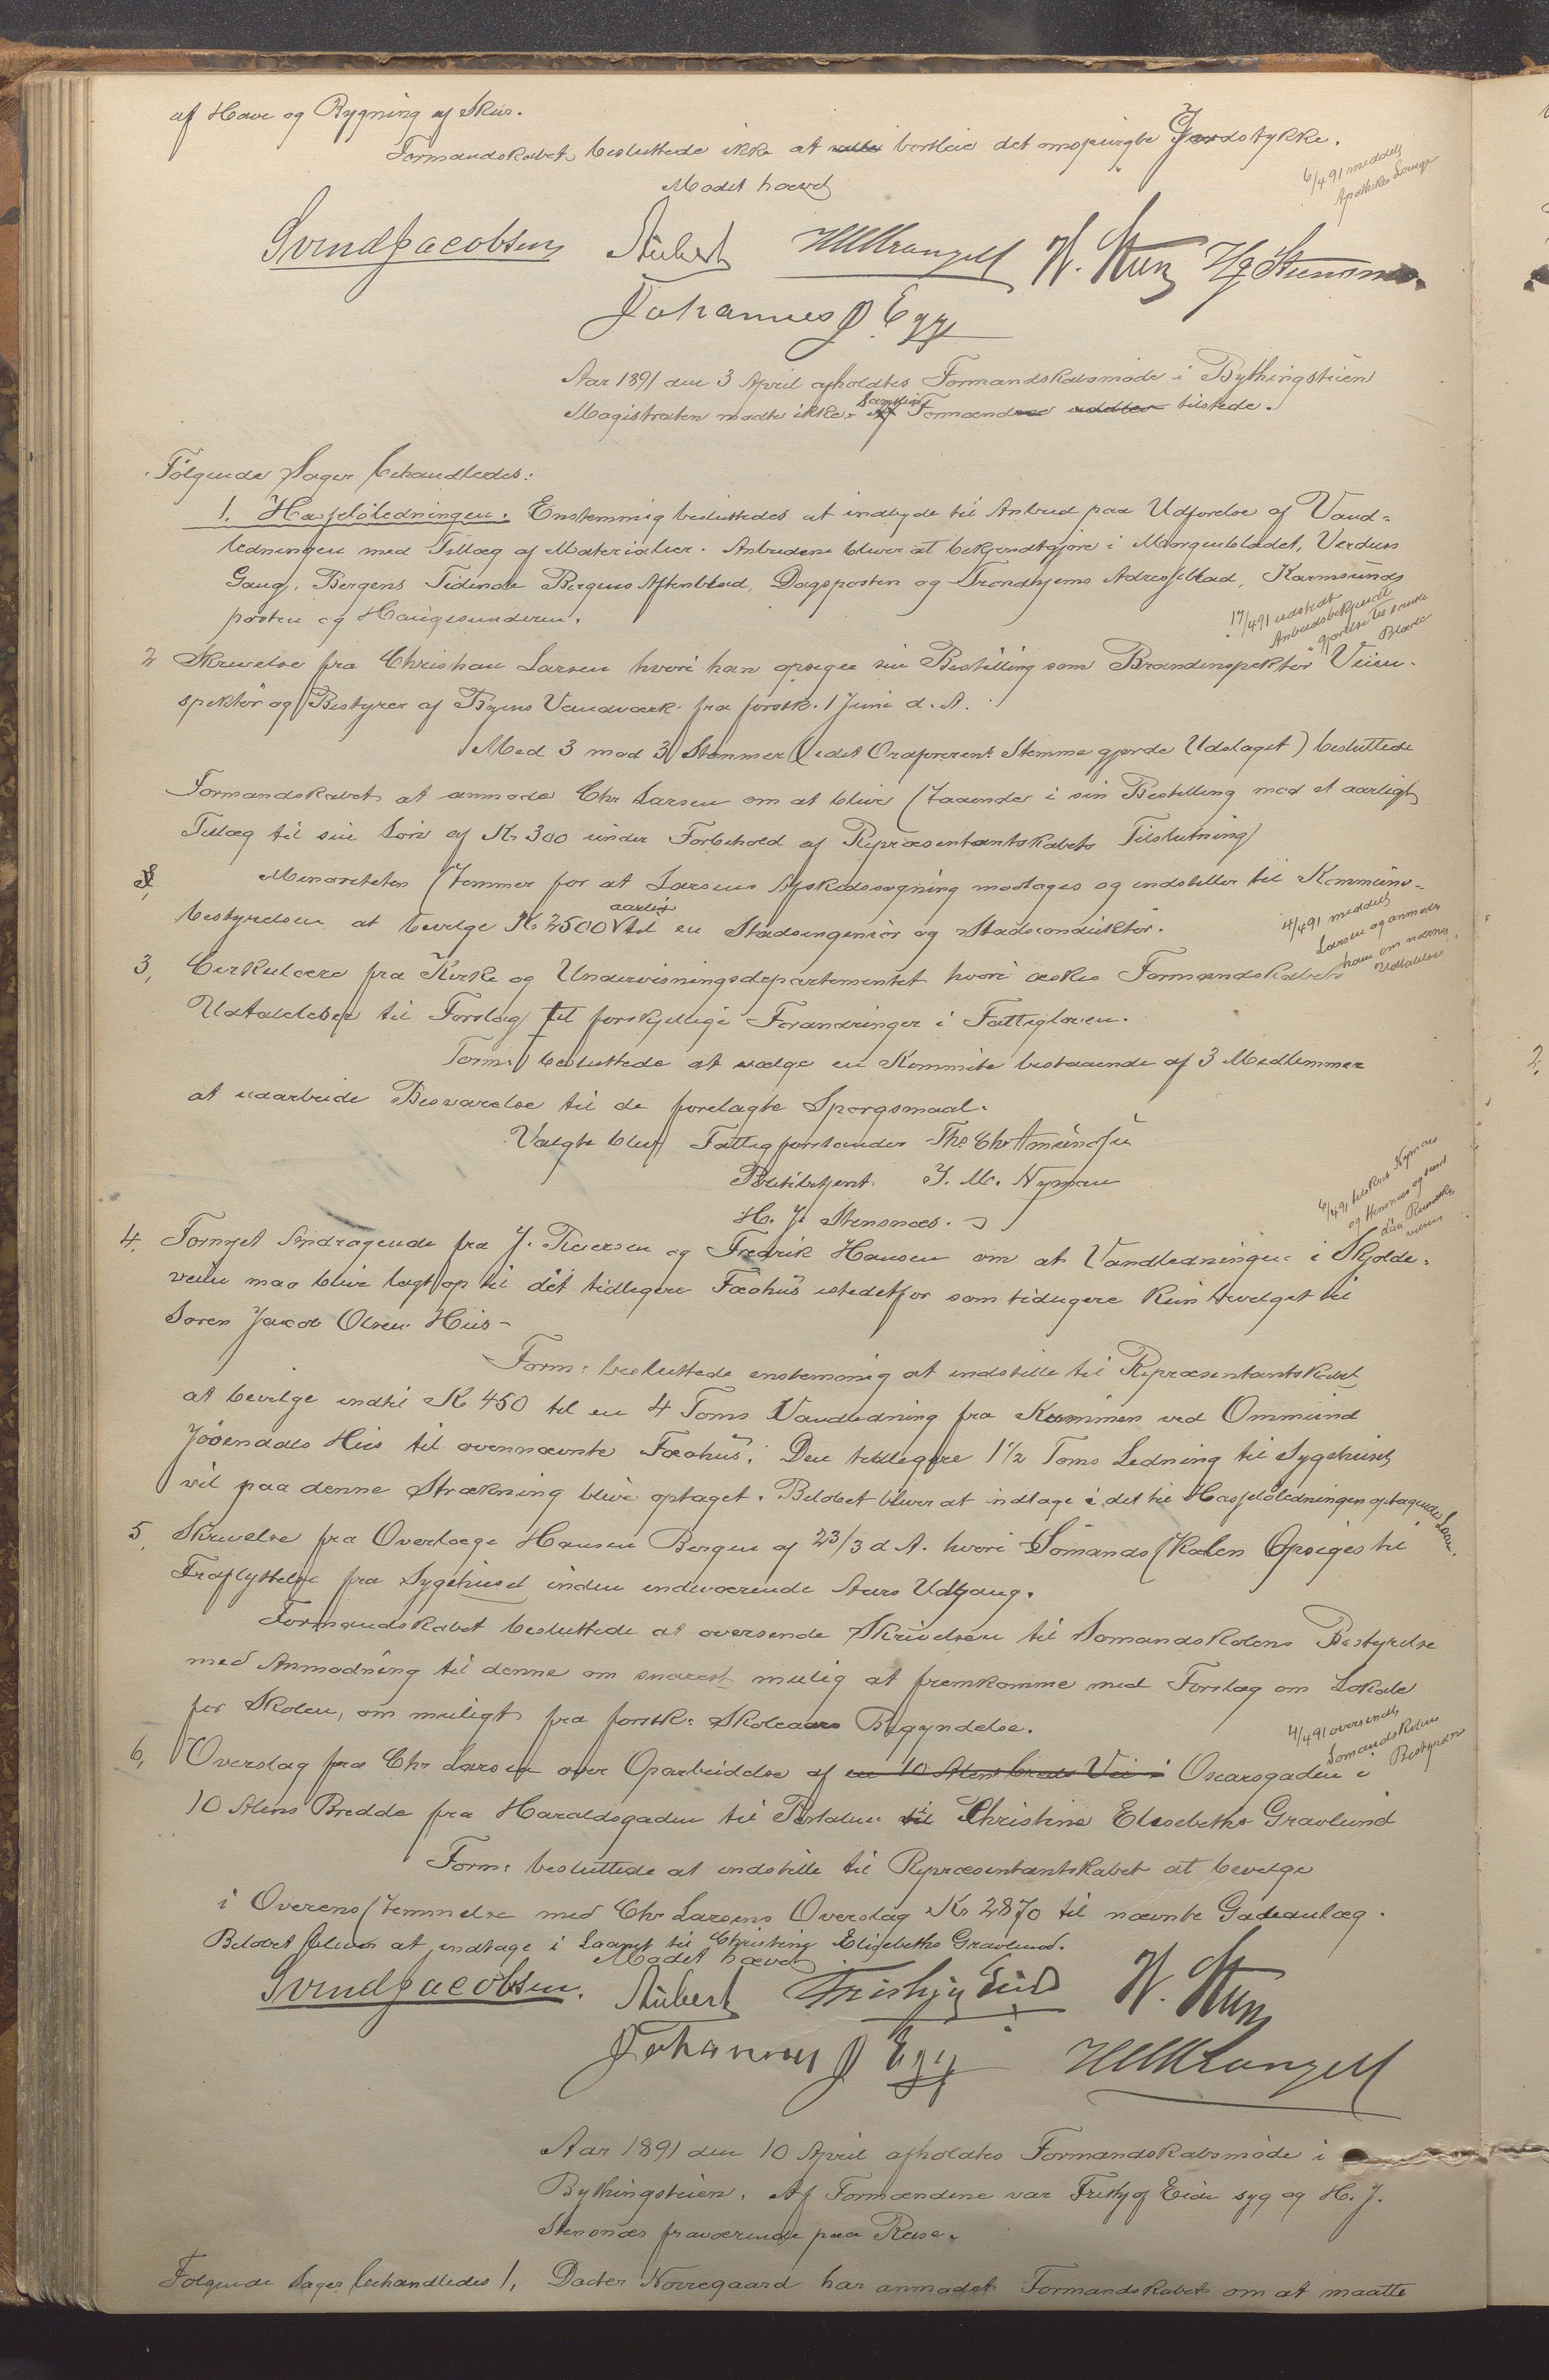 af Have og Bygning af Skur.
Formandskabet besluttede ikke at bortleie det omspurgte Jordstykke.
6/4 91 meddelt
Apotheker Lange
Mødet hævet
Svend Jacobsen Aubert H. Stum H J Stensnæs
Johannes J. Egge
Aar 1891 den 3 April afholdtes Formandskabsmøde i Bythingstuen
Magistraten mødte ikke. Samtlige Formænd tilstede.
Følgende Sager behandledes:
1. Hasseløledningen. Enstemmig besluttedes at indbyde til Anbud paa Udførelse af Vand-
ledningen med Tillæg af Materialier. Anbudene bliver at bekjendtgjøre i Morgenbladet, Verdens
Gang, Bergens Tidende Bergens Aftenblad, Dagsposten og Trondhjems Adresseblad, Karmsunds
posten og Haugesunderen.
17/4 91 udstedt
Anbudsbekjendt
gjørelse til
Blade
2 Skrivelse fra Christian Larsen hvori han opsiger sin Bestilling som Brandinspektør Veiin-
spektør og Bestyrer af Byens Vandværk fra førstk. 1 Juni d. A.
Med 3 mod 3 Stemmer (idet Ordførerens Stemme gjorde Udslaget) besluttede
Formandskabet at anmode Chr Larsen om at blive staaende i sin Bestilling med et aarligt
Tillæg til sin Løn af Kr 300 under Forbehold af Repræsentantskabets Tilslutning
Menoriteten stemmer for at Larsens Afskedssøgning modtages og indstiller til Kommune-
bestyrelsen at bevilge Kr 2500 aarlig til en Stadsingeniør og Stadsconduktør.
4/4 91 meddelt
Larsen og anmodet
ham om nærmere
Udtalelse
3, Cirkulære fra Kirke og Undervisningsdepartementet hvori æskes Formandskabets
Udtalelser til Forslag til forskjellige Forandringer i Fattigloven.
Form. besluttede at vælge en Kommite bestaaende af 3 Medlemmer
at udarbeide Besvarelse til de forelagte Spørgsmaal.
Valgte blev Fattigforstander Ths Chr Amundsen
Politibetjent J. M. Nyman
H. J. Stensnæs.
6/4 91 tilskrevet Nyman
og Stensnæs og sendt
4. Fornyet Andragende fra J. Iversen og Fredrik Hansen om at Vandledningen i Skjolde-
veien maa blive lagt op til det tidligere Fæhus istedetfor som tidligere kun bevilget til
Søren Jacob Olsens Hus -
Form: besluttede enstemmig at indstille til Repræsentantskabet
at bevilge indtil Kr 450 til en 4 Toms Vandledning fra Kummen ved Ommund
Jøsendals Hus til ovennævnte Fæhus. Den tidligere 1½ Toms Ledning til Sygehuset
vil paa denne Strækning blive optaget. Beløbet bliver at indtage i det til Hasseløledningen optagende Laan.
5, Skrivelse fra Overlæge Hansen Bergen af 23/3 d A. hvori Sømandsskolen Opsiges til
Fraflyttelse fra Sygehuset inden indeværende Aars Udgang.
Formandskabet besluttede at oversende Skrivelsen til Sømandskolens Bestyrelse
med Anmodning til denne om snarest mulig at fremkomme med Forslag om Lokale
for Skolen, om muligt fra førstk: Skoleaars Begyndelse.
4/4 91 oversendt
Sømandskolens
Bestyrelse
6, Overslag fra Chr Larsen over Oparbeidelse af en 10 Alens bred Vei i Oscarsgaden i
10 Alens Bredde fra Haraldsgaden til Portalen til Christine Elisebeths Gravlund
Form: besluttede at indstille til Repræsentantskabet at bevilge
i Overensstemmelse med Chr Larsens Overslag Kr 2870 til nævnte Gadeanlæg.
Beløbet bliver at indtage i Laanet til Christine Elisebeths Gravlund.
Mødet hævet
Svend Jacobsen. Aubert Frithjof Eide H. Stum
Johannes J Egge
Aar 1891 den 10 April afholdtes Formandskabsmøde i
Bythingstuen. Af Formændene var Frithjof Eide syg og H. J.
Stensnæs fraværende paa Reise.
Følgende Sager behandledes 1, Docter Norregaard har anmodet Formandskabet om at maatte
2,